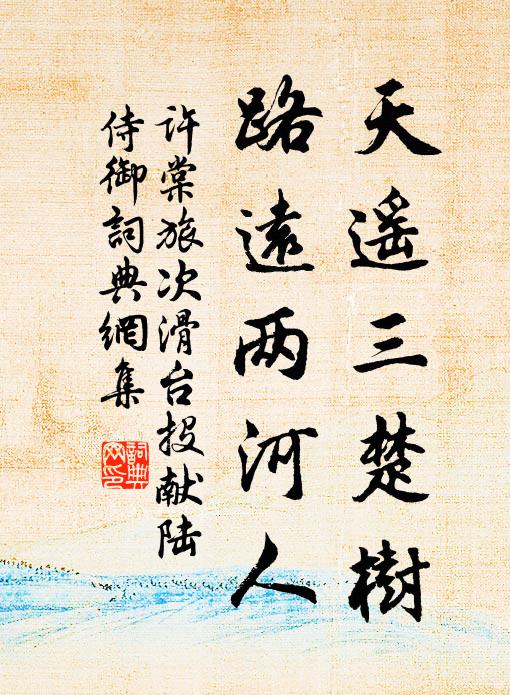 天遥三楚樹
路遠两河人
许棠旅次滑台投献陆
侍御詞典網集
詞典
网印